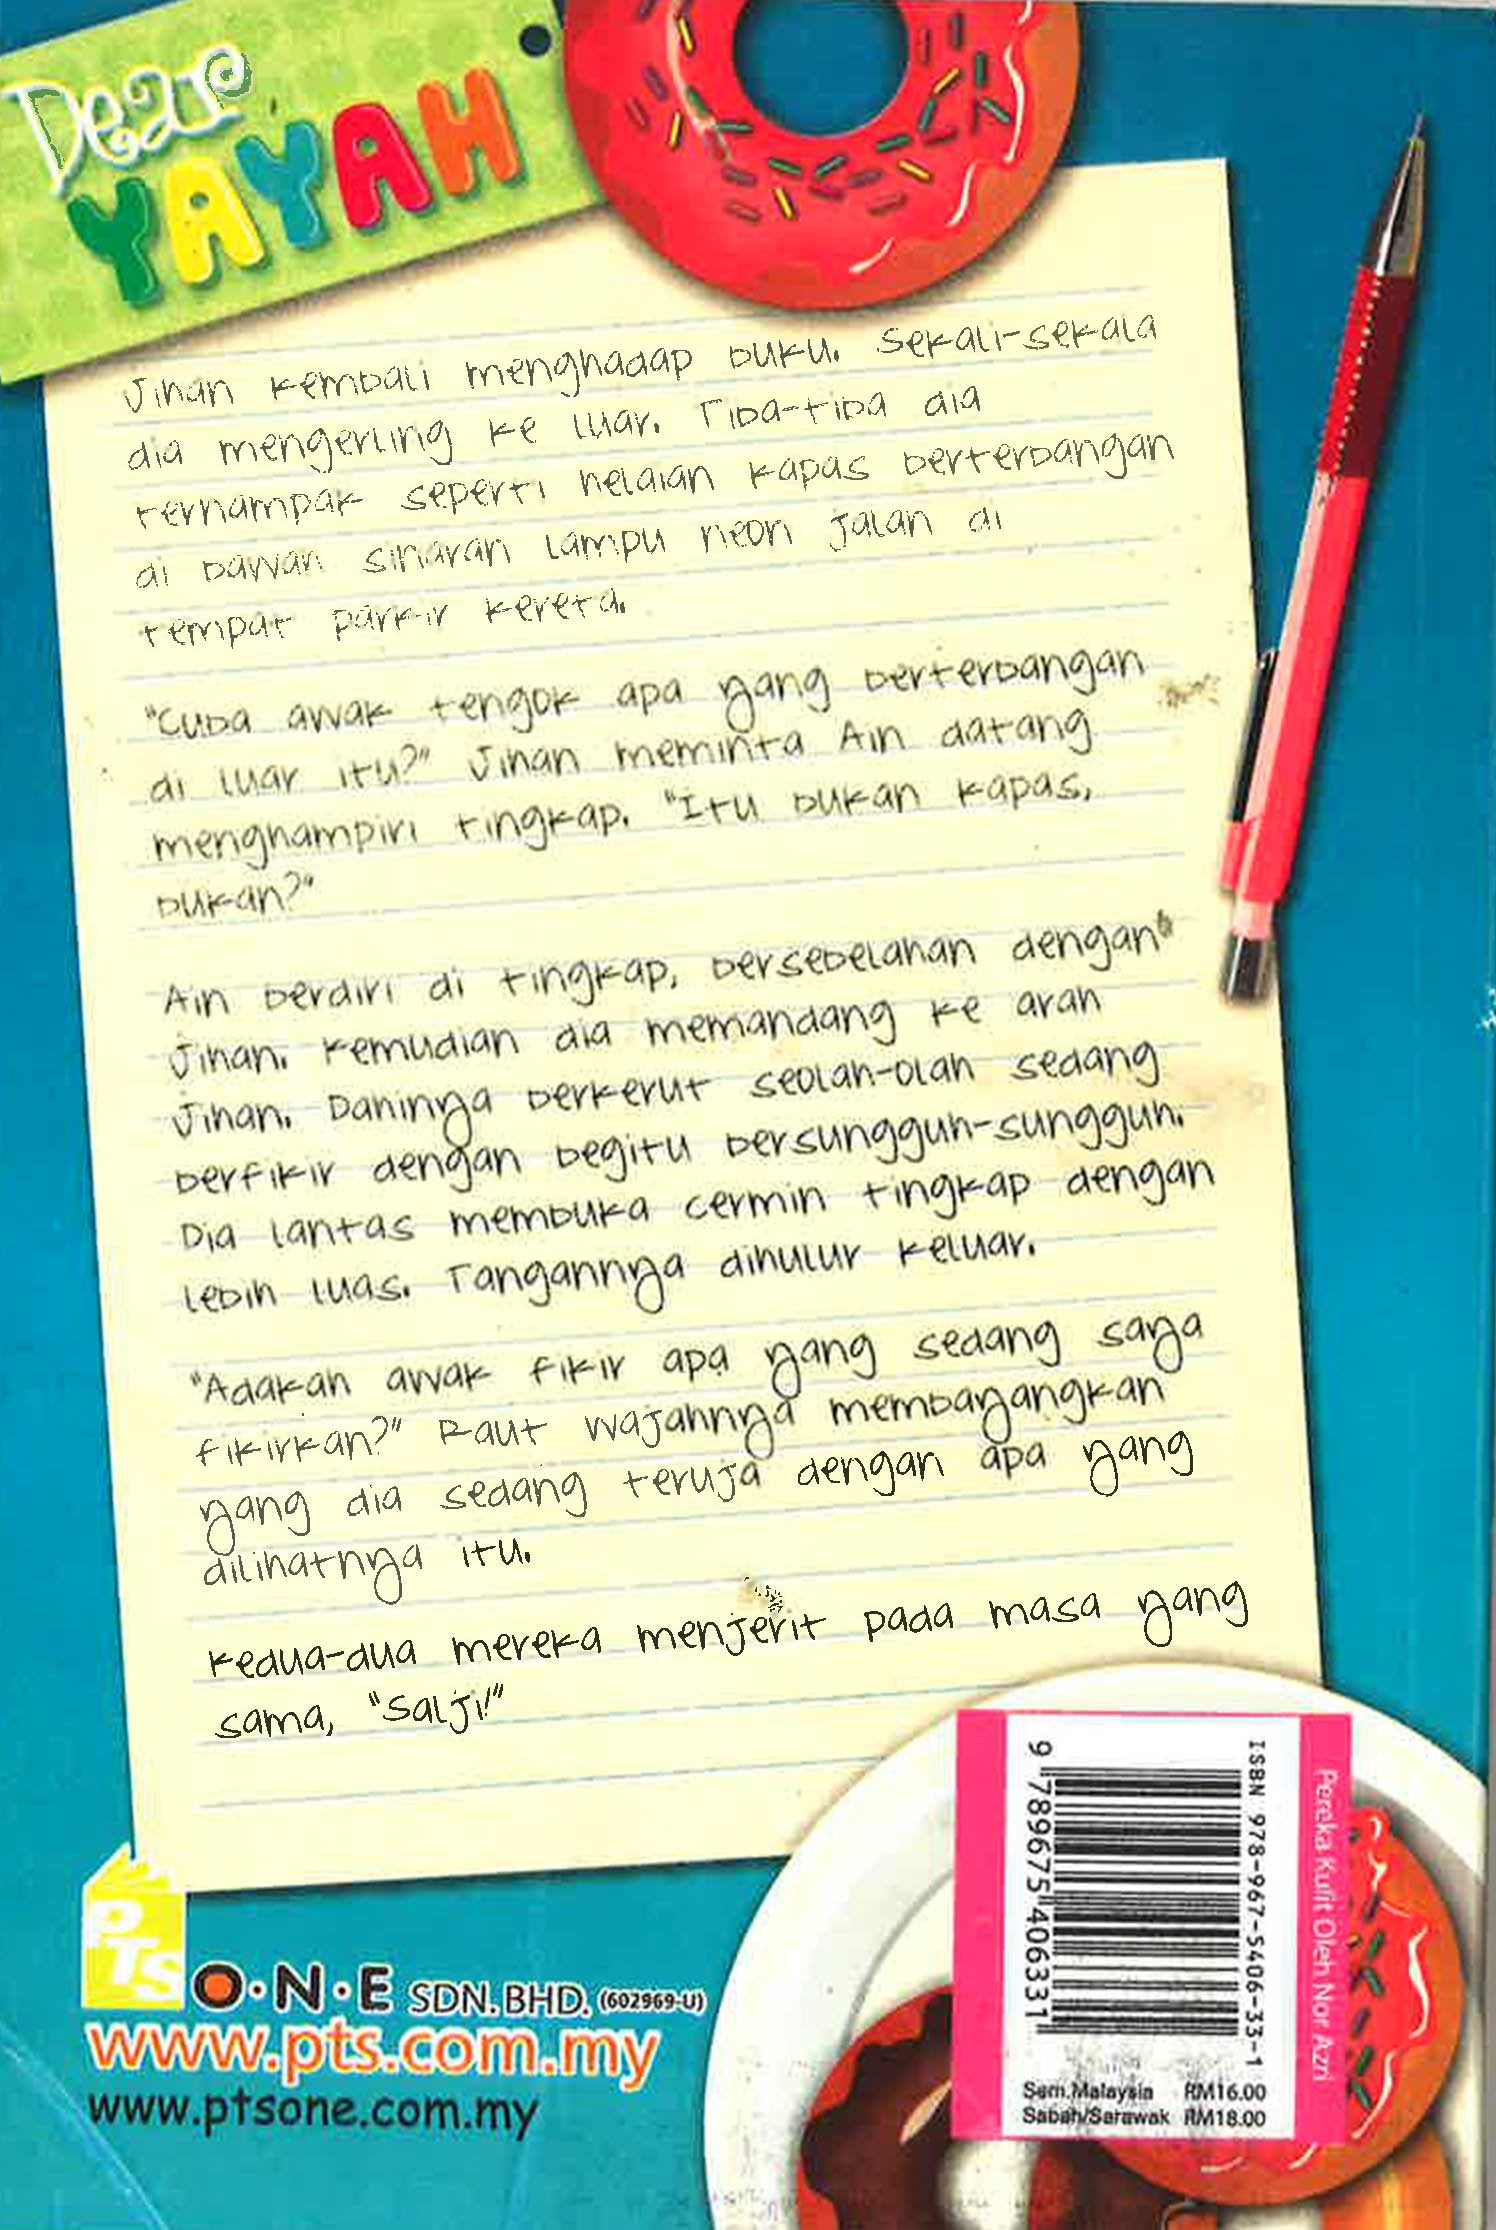 Dear
YAYAH
Jihan kembali menghadap buku. Sekali-sekala
dia mengerling ke luar. Tiba-tiba dia
ternampak seperti helaian kapas berterbangan
di bawah sinaran lampu neon jalan di
tempat parkir kereta.
"Cuba awak tengok apa yang berterbangan
di luar itu?" Jihan meminta Ain datang
menghampiri tingkap. "Itu bukan kapas,
bukan?"
Ain berdiri di tingkap, bersebelahan dengan
Jihan. Kemudian dia memandang ke arah
Jihan. Dahinya berkerut seolah-olah sedang
berfikir dengan begitu bersungguh-sungguh.
Dia lantas membuka cermin tingkap dengan
lebih luas. Tangannya dihulur keluar.
"Adakah awak fikir apa yang sedang saya
fikirkan?" Raut wajahnya membayangkan
yang dia sedang teruja dengan apa yang
dilihatnya itu.
Kedua-dua mereka menjerit pada masa yang
sama, "Salji!"
PTS
O·N·E SDN. BHD. (602969-U)
www.pts.com.my
www.ptsone.com.my
Pereka Kulit Oleh Nor Azri
ISBN 978-967-5406-33-1
9 789675 406331
Sem.Malaysia RM16.00
Sabah/Sarawak RM18.00